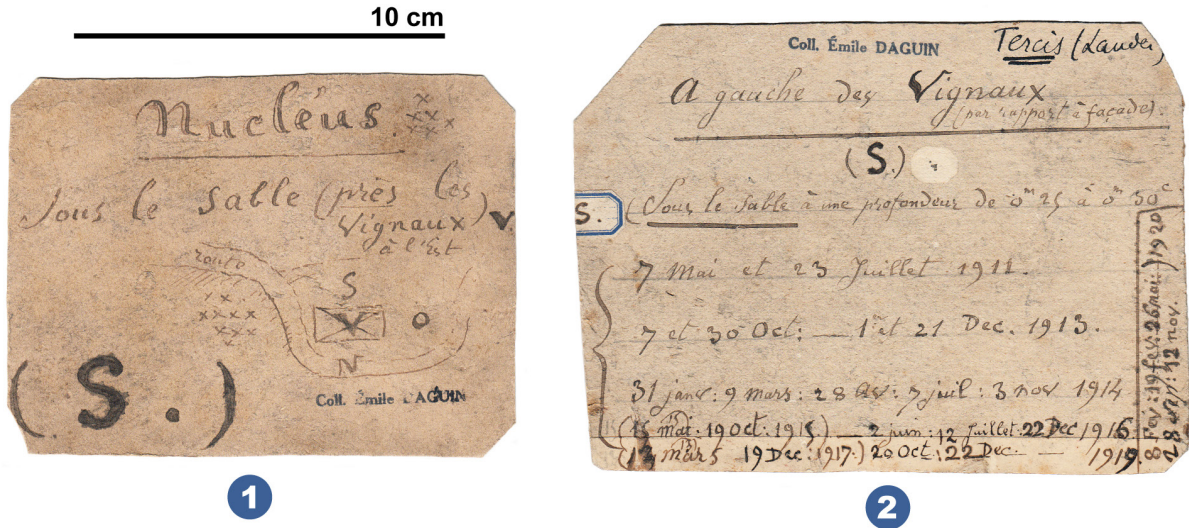 10 cm
Nucléus.
Sous le sable (près les
Vignaux) V.
à l'Est
route
S
V O
N
(S.)
Coll. Émile DAGUIN
1
Coll. Émile DAGUIN Tercis (Landes)
A gauche des Vignaux
(par rapport à façade).
(S.)
S. (Sous le sable à une profondeur de 0m 25 à 0m 30c
7 Mai et 23 Juillet 1911.
7 et 30 Oct: — 1er et 21 Dec. 1913.
31 janv: 9 mars: 28 Av: 7 juil: 3 nov 1914
(15 mai. 19 Oct: 1915) 2 juin: 12 Juillet: 22 Dec 1916.
19 Dec: 1917.) 20 Oct: 22 Dec. — 1919.
8 Fev: 19 fev: 26 mai: 1920
12 nov.
2